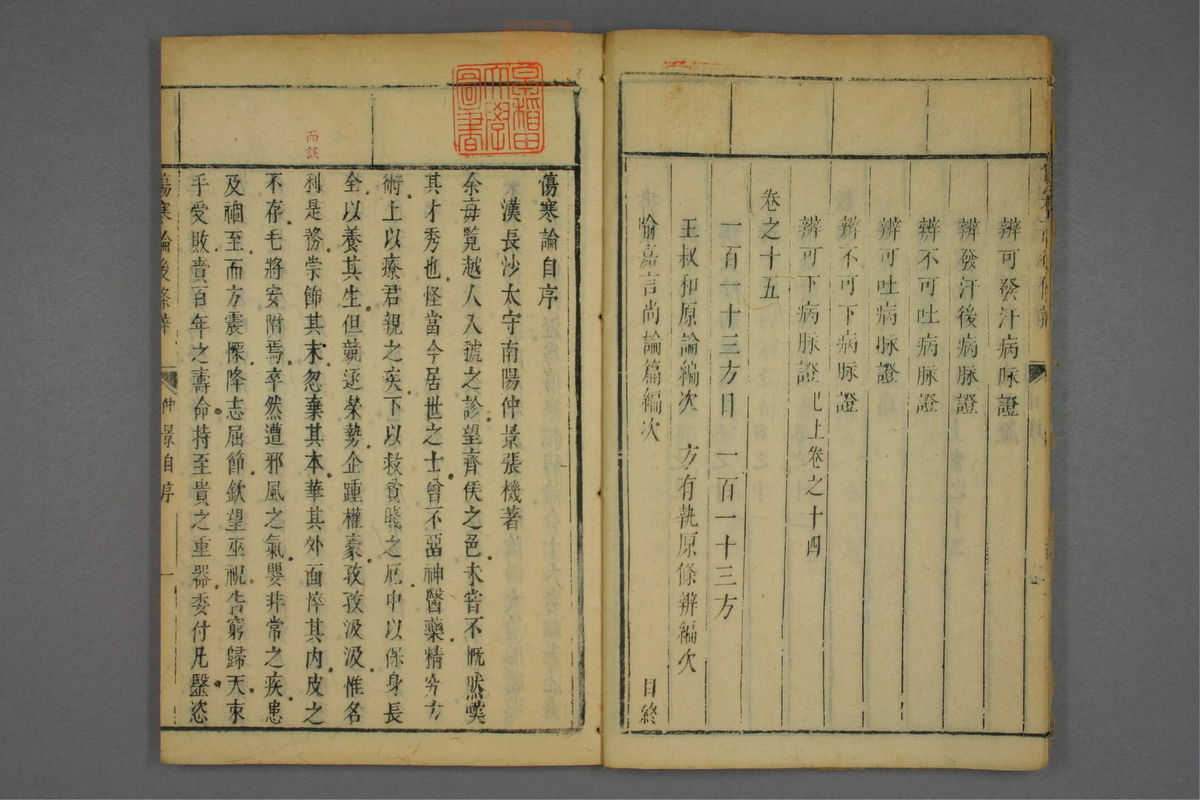 辨可發汗病脉證
辨發汗後病脉證
辨不可吐病脉證
辨可吐病脉證
辨不可下病脉證
辨可下病脉證 已上卷之十四
卷之十五
一百一十三方目 一百一十三方
王叔和原論編次 方有執原條辨編次
喻嘉言尚論篇編次 目終
早稻田大學圖書
傷寒論自序
漢長沙太守南陽仲景張機著
余每覧越人入虢之診望齊侯之色未嘗不慨然嘆
其才秀也怪當今居世之士曾不畱神醫藥精究方
術上以療君親之疾下以救貧賤之厄中以保身長
全以養其生但競逐榮勢企踵權豪孜孜汲汲惟名
利是務崇飾其末忽棄其本華其外面悴其内皮之
而誤
不存毛將安附焉卒然遭邪風之氣嬰非常之疾患
及禍至而方震慄降志屈節欽望巫祝告窮歸天束
手受敗賫百年之壽命持至貴之重器委付凡醫恣
傷寒論後條辨 仲景自序 一